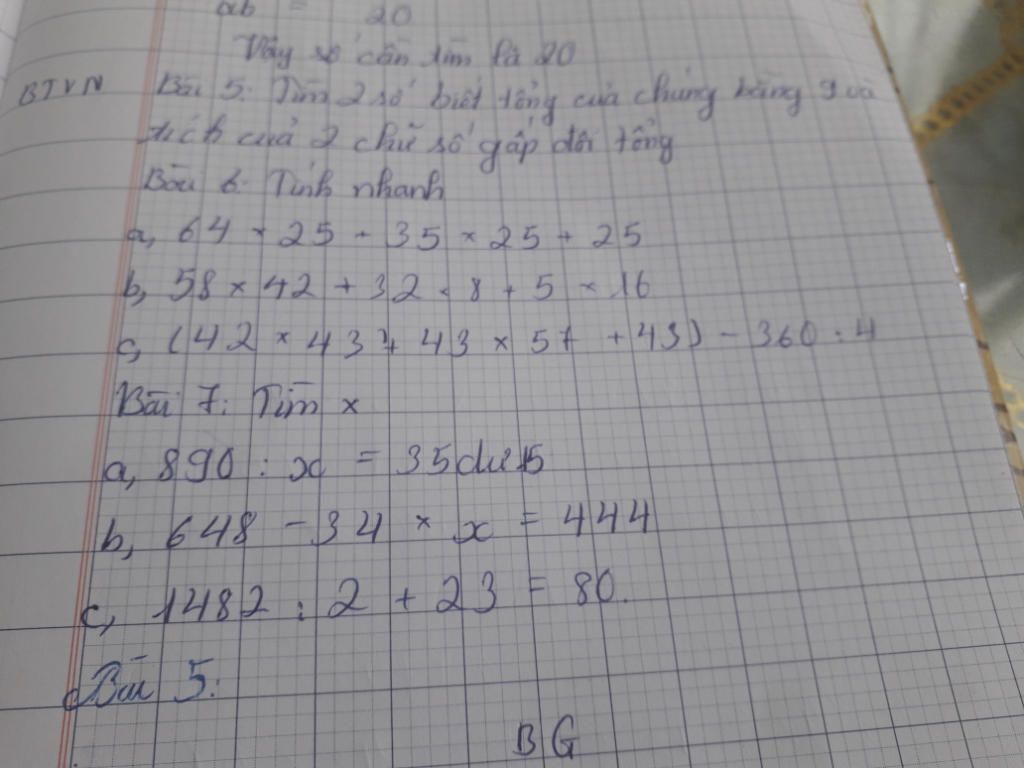 ab = 20
Vậy số cần tìm là 20
BTVN Bài 5: Tìm 2 số biết tổng của chúng bằng 9 và
tích của 2 chữ số gấp đôi tổng
Bài 6: Tính nhanh
a, 64 × 25 + 35 × 25 + 25
b, 58 × 42 + 32 × 8 + 5 × 16
c, (42 × 43 + 43 × 57 + 43) - 360 : 4
Bài 7: Tìm x
a, 890 : x = 35 dư 15
b, 648 - 34 × x = 444
c, 1482 : 2 + 23 = 80.
Bài 5:
BG